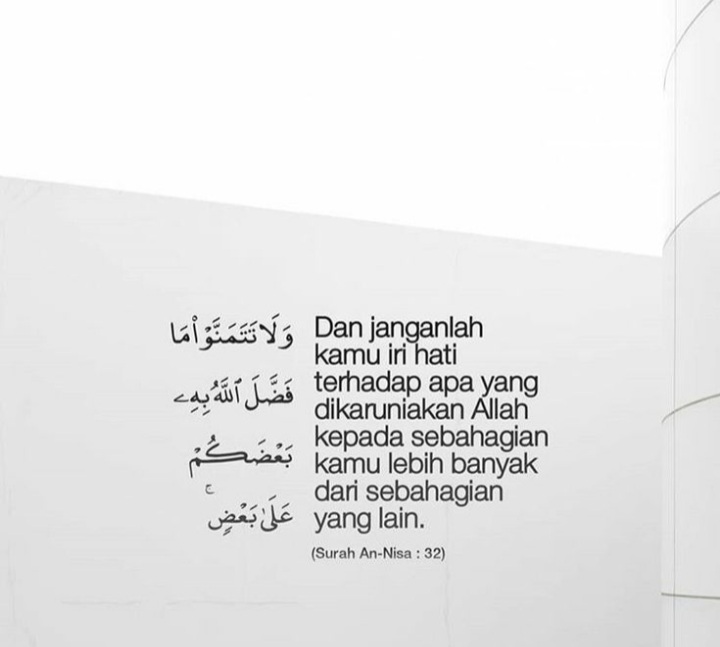 وَلَا تَتَمَنَّوْا۟ مَا
فَضَّلَ ٱللَّهُ بِهِۦ
بَعْضَكُمْ
عَلَىٰ بَعْضٍ ۚ
Dan janganlah
kamu iri hati
terhadap apa yang
dikaruniakan Allah
kepada sebahagian
kamu lebih banyak
dari sebahagian
yang lain.
(Surah An-Nisa : 32)